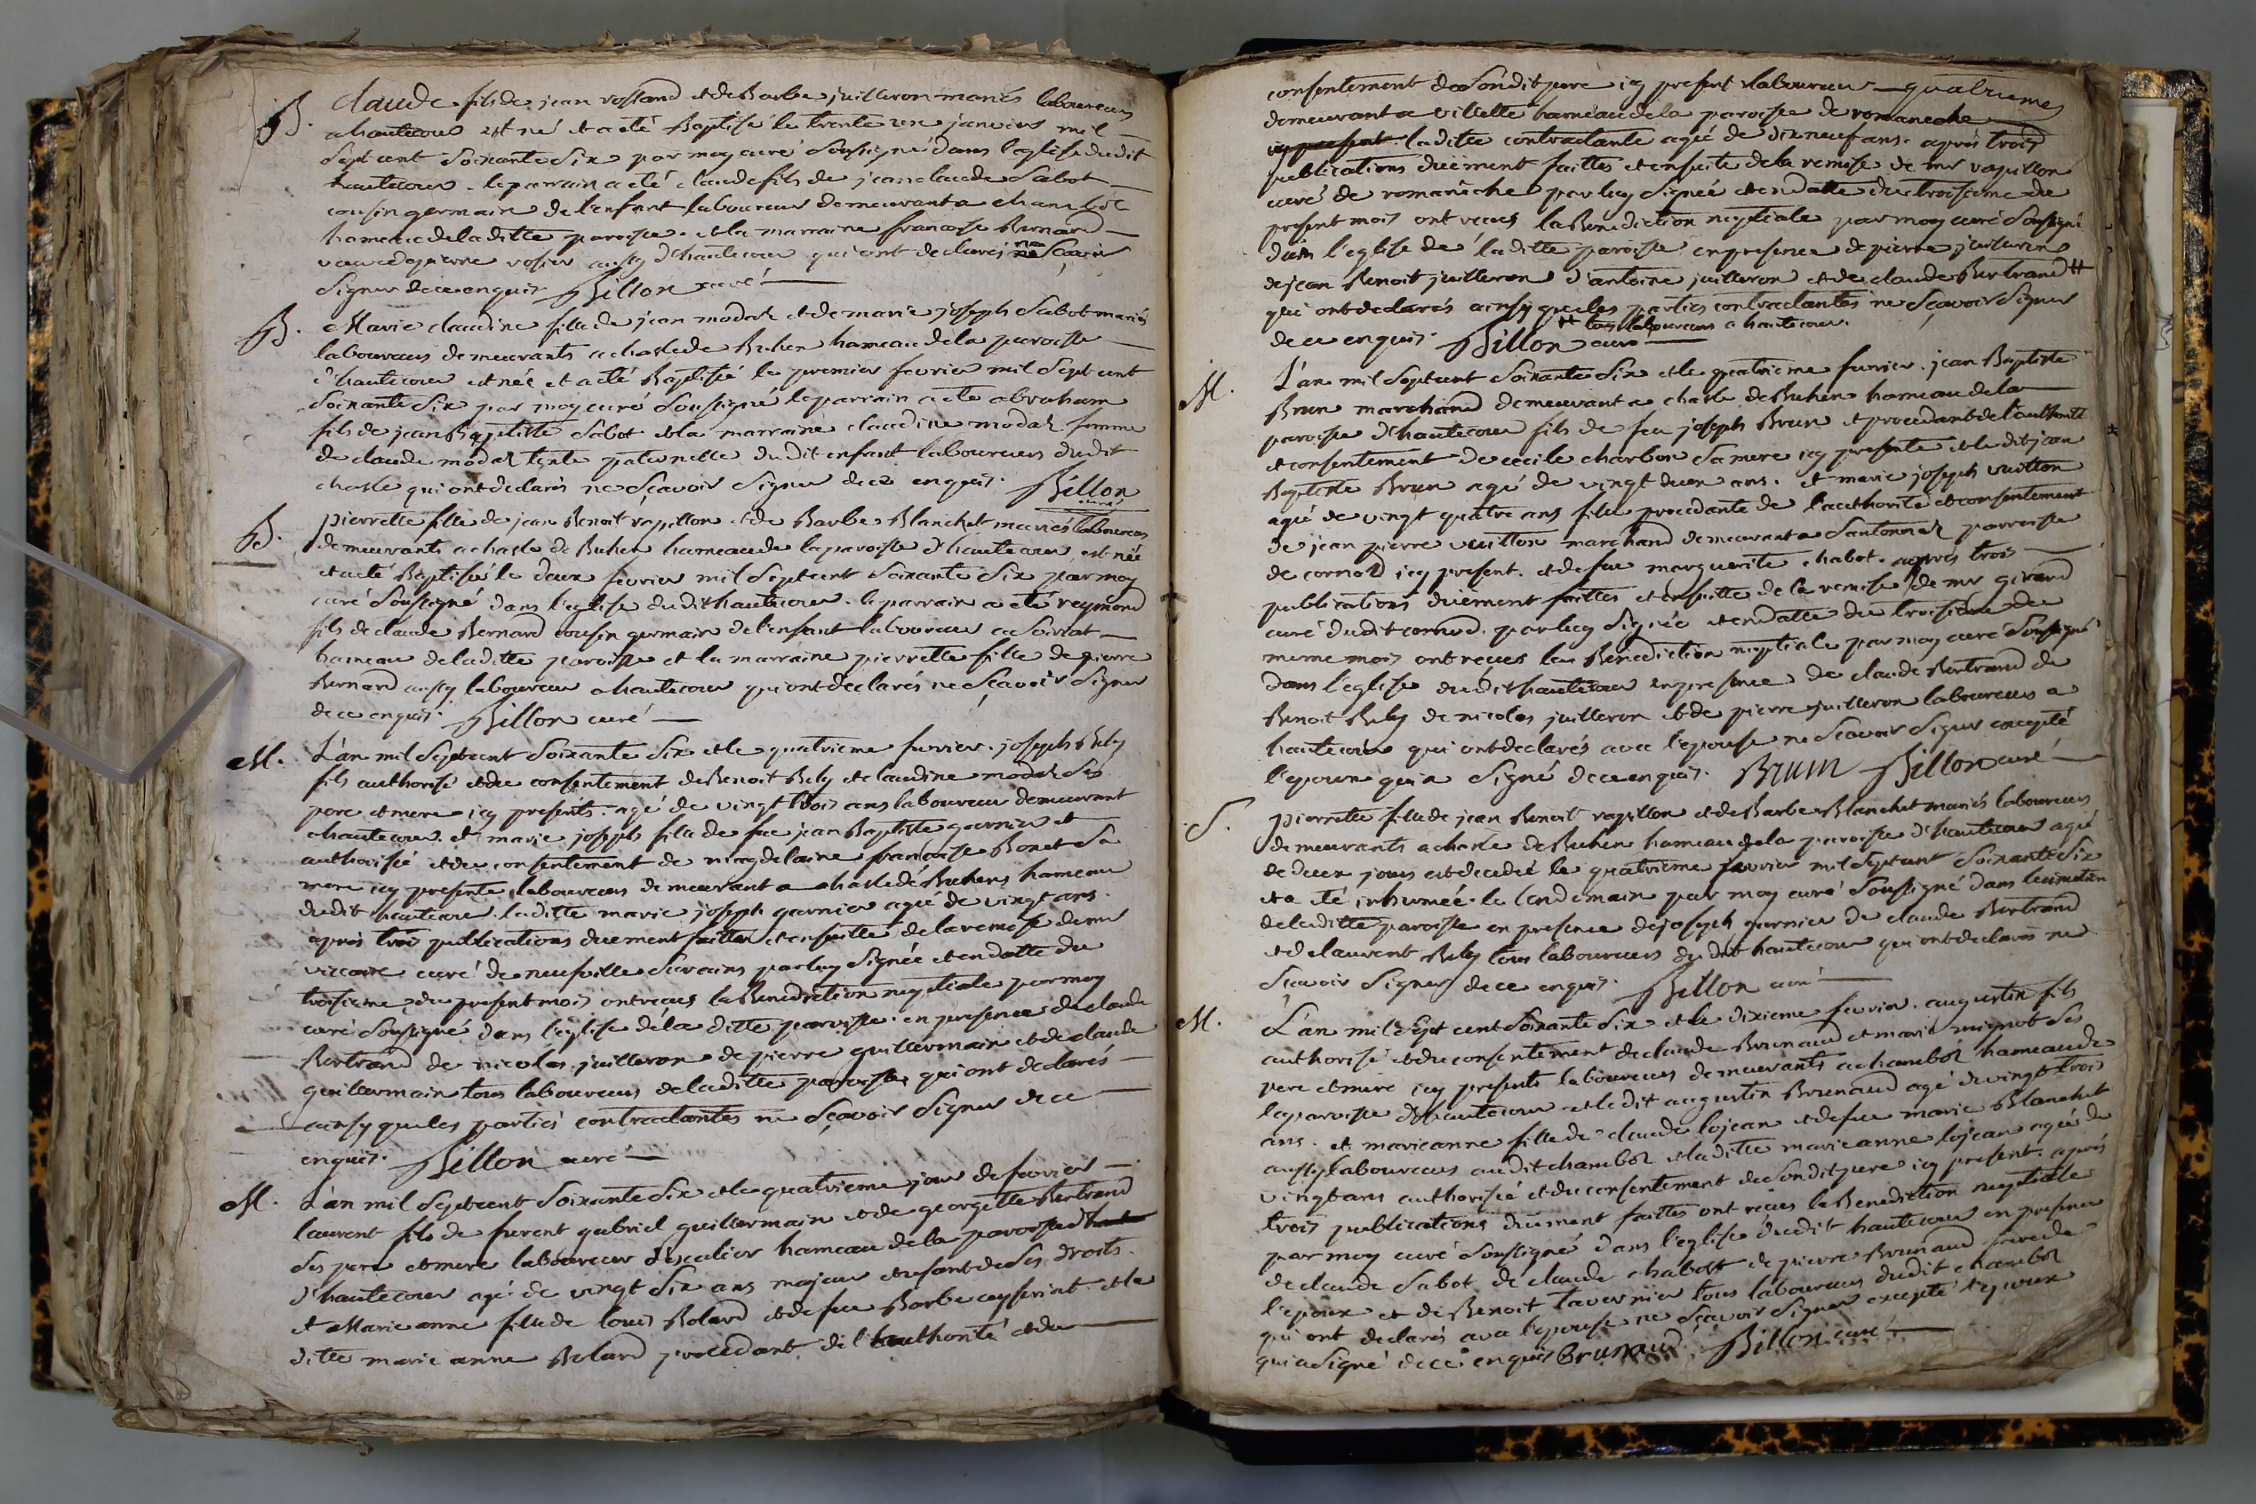 B. Claude fils de jean rossand et de Barbe juilleron mariés laboureurs
a hautecour est né et a eté Baptisé le trente un janvier mil
Sept cent Soixante Six par moy curé Soussigné dans l'eglise dudit
hautecour. le parrain a eté claude fils de jean claude Sabot
cousin germain de l'enfant laboureur demeurant a chambos
hameau de la ditte paroisse. et la marraine francoise Bernard
veuve de pierre rosier aussy d'hautecour qui ont declarés ne Scavoir
Signer de ce enquis. Billon curé
B. Marie claudine fille de jean modas et de marie joseph Sabot mariés
laboureurs demeurants a charle de Buhen hameau de la paroisse
d'hautecour est née et a eté Baptisée le premier fevrier mil Sept cent
Soixante Six par moy curé Soussigné le parrain a eté abraham
fils de jean Baptiste Sabot et la marraine claudine modas femme
de claude modas tente paternelle dudit enfant laboureurs dudit
charle qui ont declarés ne Scavoir Signer de ce enquis. Billon curé
B. pierrette fille de jean Benoit rapillon et de Barbe Blanchet mariés laboureurs
demeurants a charle de Buhen hameau de la paroisse d'hautecour est née
et a eté Baptisée le deux fevrier mil Sept cent Soixante Six par moy
curé Soussigné dans l'eglise dudit hautecour. le parrain a eté reymond
fils de claude Bernard cousin germain de l'enfant laboureur a Soiriat
hameau de la ditte paroisse et la marraine pierrette fille de pierre
Bernard aussy laboureur a hautecour qui ont declarés ne Scavoir Signer
de ce enquis. Billon curé
M. L'an mil Sept cent Soixante Six et le quatrieme fevrier. joseph Buly
fils authorisé et du consentement de Benoit Buly et claudine modas Ses
pere et mere icy presents. agé de vingt trois ans laboureur demeurant
a hautecour. et marie joseph fille de feu jean Baptiste garnier et
authorisée et du consentement de magdelaine francoise Bonet Sa
mere icy presente laboureurs demeurant a charle de Buhens hameau
dudit hautecour. la ditte marie joseph garnier agée de vingt ans.
après trois publications duement faittes et ensuitte de la remise de mr
curé de neufville Sur ains par luy Signée et en datte du
troisieme du present mois ont recues la Benediction nuptiale par moy
curé Soussigné dans l'eglise de la ditte paroisse. en presence de claude
Bertrand de nicolas juilleron de pierre guillermain et de claude
guillermain tous laboureurs de la ditte paroisse qui ont declarés
ainsy que les parties contractantes ne Scavoir Signer de ce
enquis. Billon curé
M. L'an mil Sept cent Soixante Six et le quatrieme jour de fevrier
laurent fils de furent gabriel guillermain et de georgette Bertrand
Ses pere et mere laboureur d'escalier hameau de la paroisse
d'hautecour agé de vingt Six ans majeur et usant de Ses droits.
et Marie anne fille de louis Bolard et de feu Barbe et la
ditte marie anne Bolard procedant de l'authorité et du
consentement de Son dit pere icy present laboureur quatriemes
demeurant a villette hameau de la paroisse de romaneche
icy present. la ditte contractante agée de dix neuf ans. après trois
publications duement faittes et ensuite de la remise de mr rapillon
curé de romaneche par luy Signée et en datte du troisieme du
present mois ont recues la Benediction nuptiale par moy curé Soussigné
dans l'eglise de la ditte paroisse en presence de pierre juilleron
de jean Benoit juilleron d'antoine juilleron et de claude Bertrand #
qui ont declarés ainsy que les parties contractantes ne Scavoir Signer
# tous laboureurs a hautecour.
de ce enquis. Billon curé
M. L'an mil Sept cent Soixante Six et le quatrieme fevrier. jean Baptiste
Brun marchand demeurant a charle de Buhen hameau de la
paroisse d'hautecour fils de feu joseph Brun et procedant de l'authorité
et consentement de cecile charbon Sa mere icy presente et le dit jean
Baptiste Brun agé de vingt deux ans. et marie joseph vuitton
agée de vingt quatre ans fille procedante de l'authorité et consentement
de jean pierre vuitton marchand demeurant a Santonnas parroisse
de cornod icy present. et de feu marguerite chabot. après trois
publications duement faittes et ensuitte de la remise de mr girand
curé dudit cornod. par luy Signée et en datte du troisieme du
meme mois ont recues la Benediction nuptiale par moy curé Soussigné
dans l'eglise dudit hautecour en presence de claude Bertrand de
Benoit Buly de nicolas juilleron et de pierre juilleron laboureurs a
hautecour qui ont declarés avec l'epouse ne Scavoir Signer excepté
l'epoux qui a Signé de ce enquis. Brun Billon curé
S. pierrette fille de jean Benoit rapillon et de Barbe Blanchet mariés laboureurs
demeurants a charle de Buhen hameau de la paroisse d'hautecour agée
de deux jours est decedée le quatrieme fevrier mil Sept cent Soixante Six
et a eté inhumée le lendemain par moy curé Soussigné dans le cimetière
de la ditte paroisse en presence de joseph garnier de claude Bertrand
et de laurent Buly tous laboureurs dudit hautecour qui ont declarés ne
Scavoir Signer de ce enquis. Billon curé
M. L'an mil Sept cent Soixante Six et le dixieme fevrier. augustin fils
authorisé et du consentement de claude Brunaud et marie mignot Ses
pere et mere icy presents laboureurs demeurants a chambos hameau de
la paroisse d'hautecour et le dit augustin Brunaud agé de vingt trois
ans. et marieanne fille de claude lojean et de feu marie Blanchet
aussy laboureurs au dit chambos et la ditte marieanne lojean agée de
vingt ans authorisée et du consentement de Son dit pere icy present. après
trois publications duement faittes ont recues la Benediction nuptiale
par moy curé Soussigné dans l'eglise dudit hautecour en presence
de claude Sabot de claude chabost de pierre Brunaud frere de
l'epoux et de Benoit tavernier tous laboureurs dudit chambos
qui ont declarés avec l'epouse ne Scavoir Signer excepté l'epoux
qui a Signé de ce enquis Brunaud Billon curé